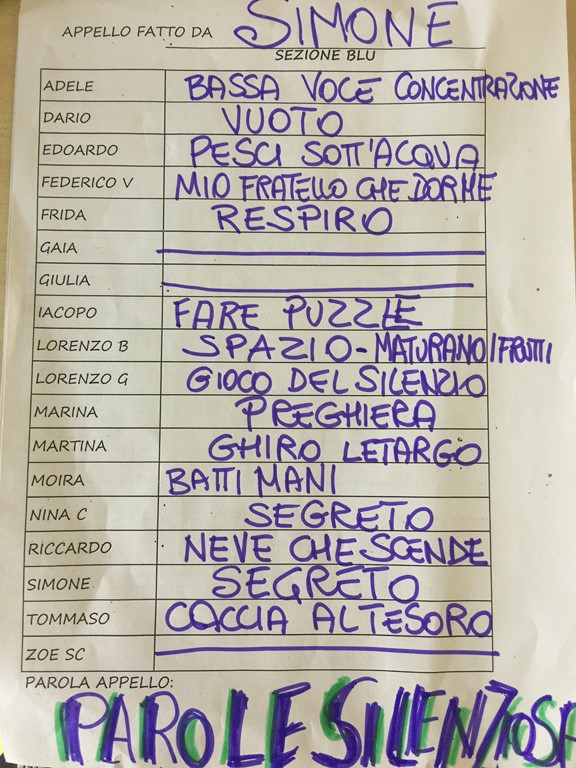 APPELLO FATTO DA SIMONE
SEZIONE BLU
ADELE BASSA VOCE CONCENTRAZIONE
DARIO VUOTO
EDOARDO PESCI SOTT'ACQUA
FEDERICO V MIO FRATELLO CHE DORME
FRIDA RESPIRO
GAIA
GIULIA
IACOPO FARE PUZZLE
LORENZO B SPAZIO-MATURANO I FRUTTI
LORENZO G GIOCO DEL SILENZIO
MARINA PREGHIERA
MARTINA GHIRO LETARGO
MOIRA BATTI MANI
NINA C SEGRETO
RICCARDO NEVE CHE SCENDE
SIMONE SEGRETO
TOMMASO CACCIA AL TESORO
ZOE SC
PAROLA APPELLO:
PAROLE SILENZIOSE